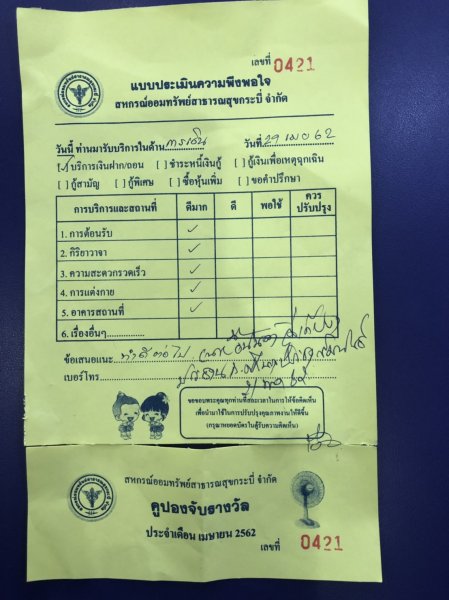 เลขที่ 0421
แบบประเมินความพึงพอใจ
สหกรณ์ออมทรัพย์สาธารณสุขกระบี่ จำกัด
วันนี้ ท่านมารับบริการในด้าน การเงิน วันที่ 29 เมย 62
[✓] บริการเงินฝาก/ถอน [ ] ชำระหนี้เงินกู้ [ ] กู้เงินเพื่อเหตุฉุกเฉิน
[ ] กู้สามัญ [ ] กู้พิเศษ [ ] ซื้อหุ้นเพิ่ม [ ] ขอคำปรึกษา
การบริการและสถานที่ ดีมาก ดี พอใช้ ควรปรับปรุง
1. การต้อนรับ ✓
2. กิริยาวาจา ✓
3. ความสะดวกรวดเร็ว ✓
4. การแต่งกาย ✓
5. อาคารสถานที่ ✓
6. เรื่องอื่นๆ..............
ข้อเสนอแนะ ทำดีต่อไป
เบอร์โทร
ขอขอบพระคุณทุกท่านที่สละเวลาในการให้ข้อคิดเห็น
เพื่อนำมาใช้ในการปรับปรุงคุณภาพงานให้ดีขึ้น
(กรุณาหยอดบัตรในตู้รับความคิดเห็น)
สหกรณ์ออมทรัพย์สาธารณสุขกระบี่ จำกัด
คูปองจับรางวัล
ประจำเดือน เมษายน 2562
เลขที่ 0421